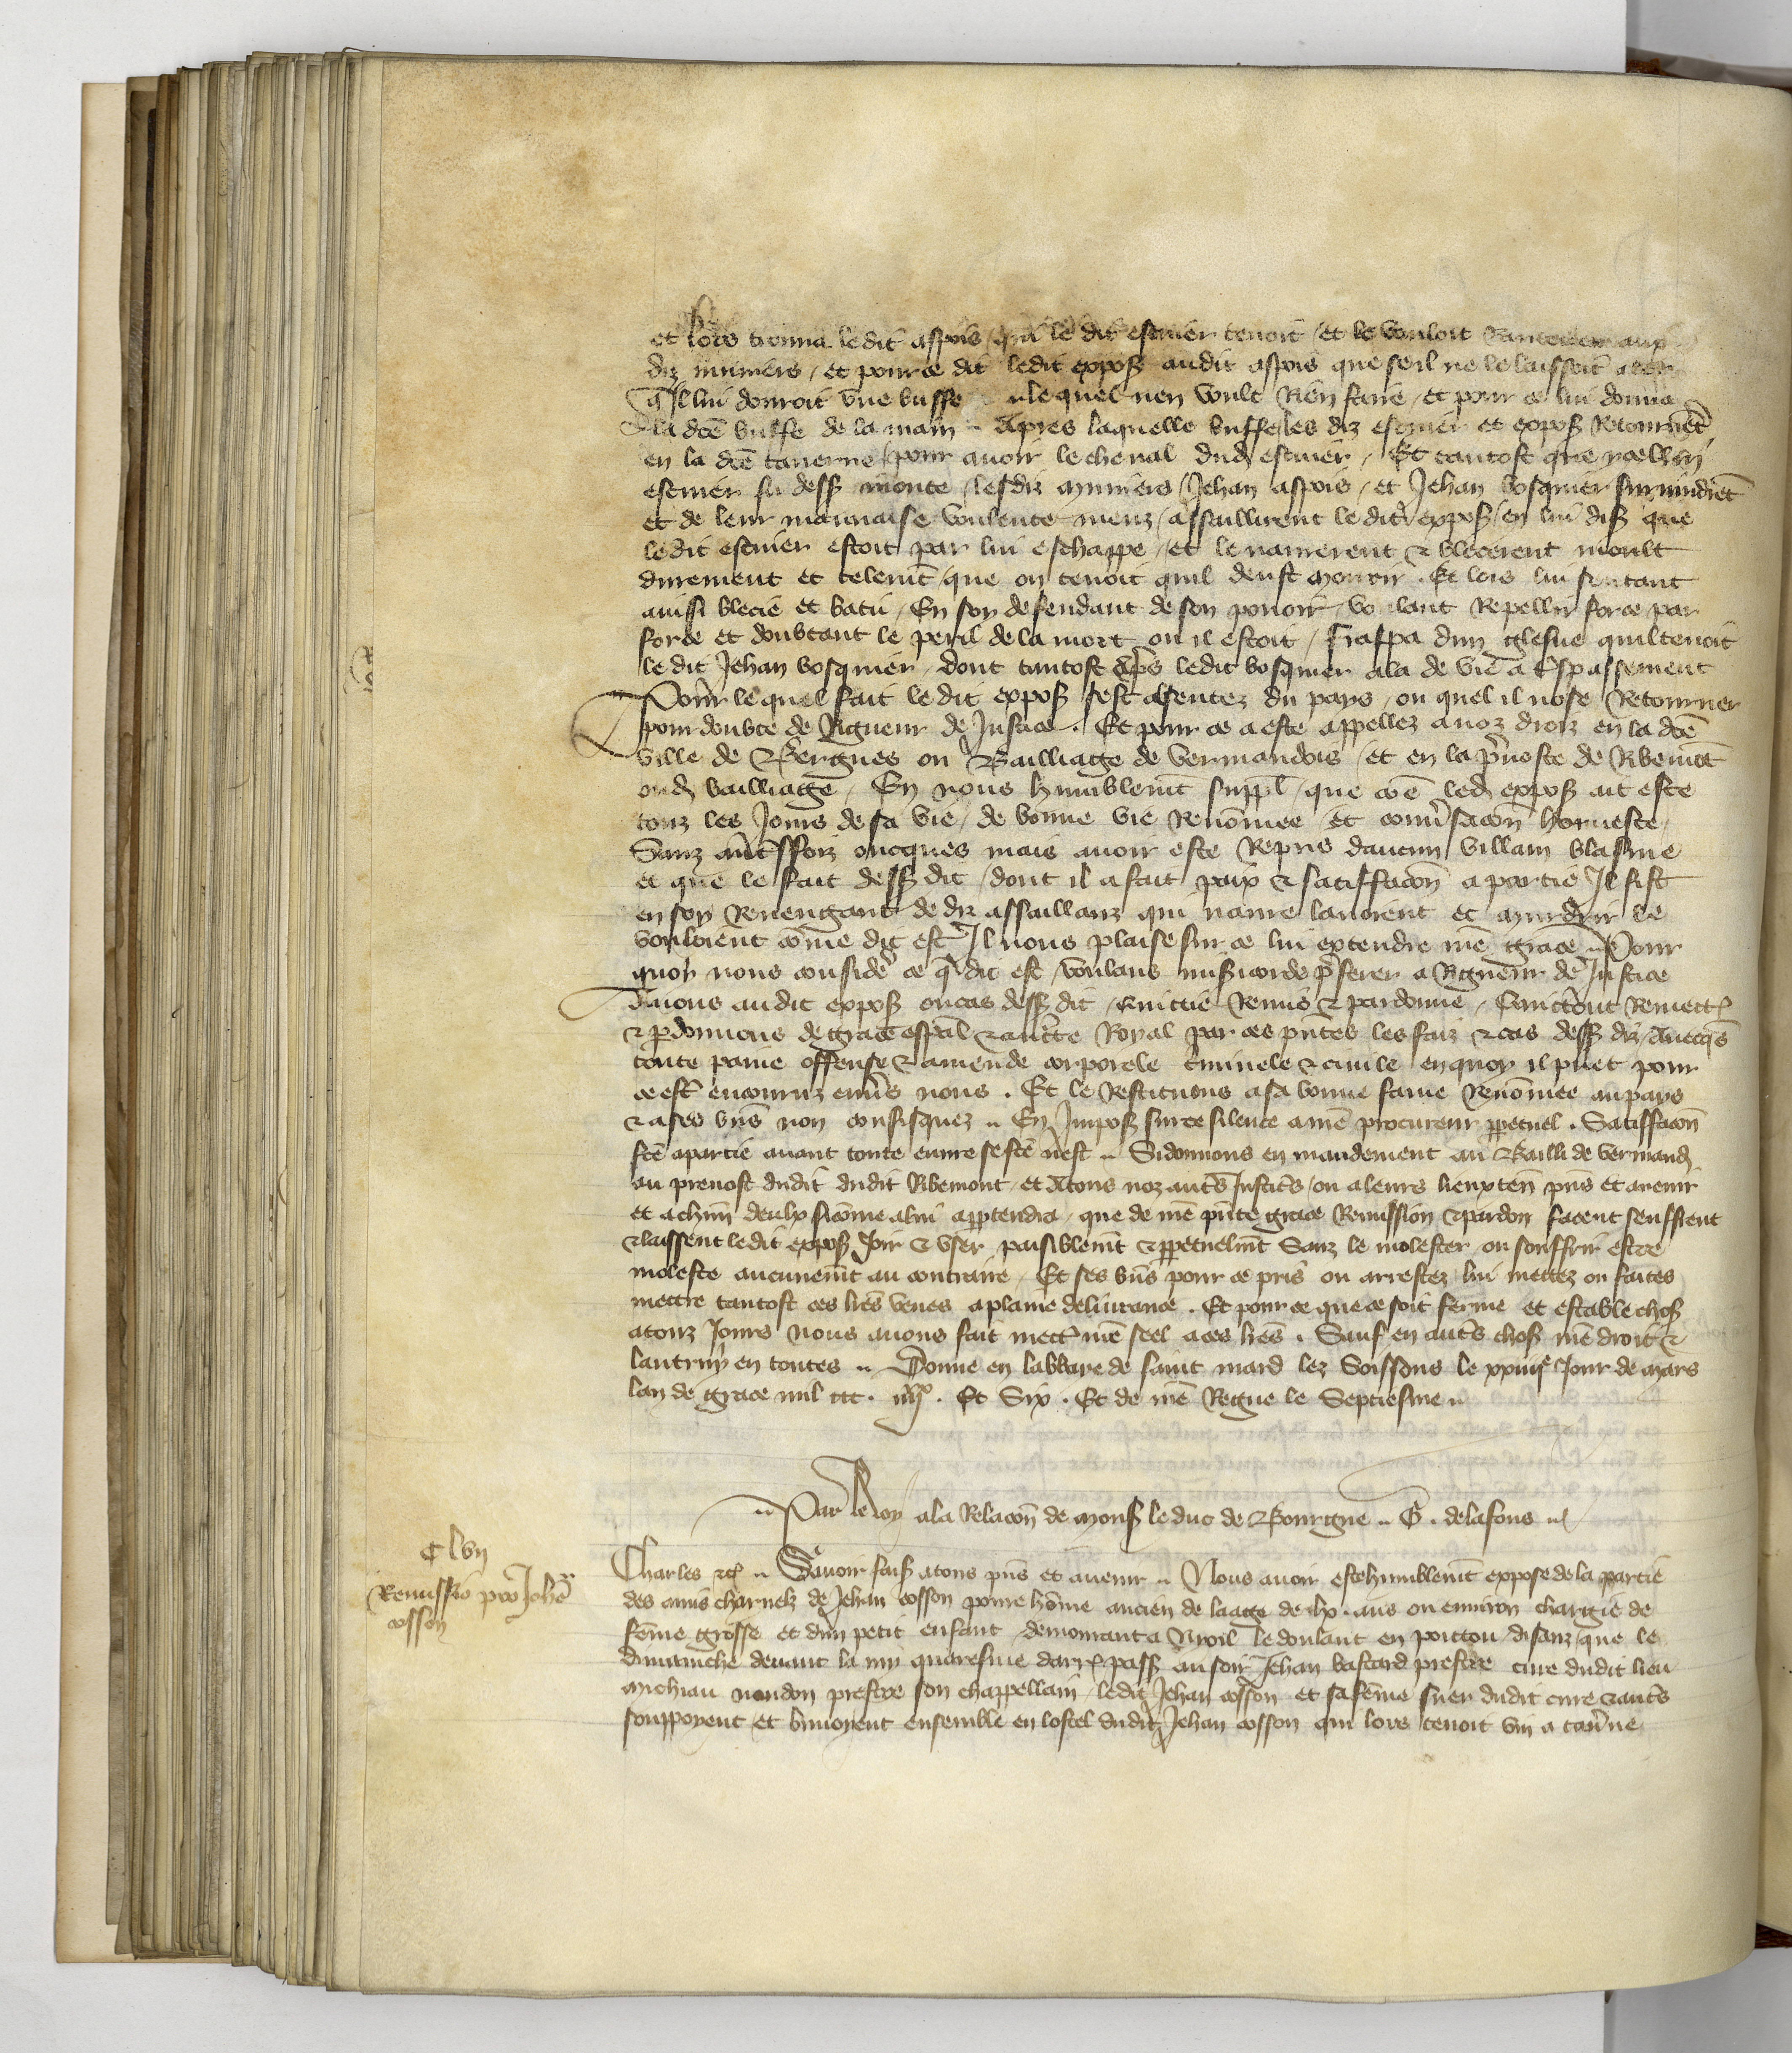 et lors tourna ledit aspois / qui le dit escuier tenoit / et le vouloit
diz muniers / et pour ce dit ledit expoß audit aspois que se il ne le laissoit aler
qͥl lui donroit vne buffe lequel nen voult Rien faire / et pour ce lui donna
la dc̄e buffe de la main .. Apres laquelle buffe les diz escuier et expoß Retournerēt
en la dc̄e tauerne / pour auoir le cheual dud escuier / Et tantost que icellui
escuier fu desß monte / lesdiz muniers / Jehan aspois / et Jehan bosquier suruindrēt
et de leur mauuaise voulente meuz / assaillirent le dit expoß / en lui disß que
ledit escuier estoit par lui eschappe / et le naurerent & blecierent moult
durement et telemt̄ / que on tenoit quil deust mourir . Et lors lui sentant
ainssi blecie et batu / En soy defendant de son pouoir / voulant Repellir force par
force et doubtant le peril de la mort ou il estoit / frappa dun glesue quil tenoit
le dit Jehan bosquier / dont tantost ap̄s ledit bosquier ala de vie a trespassement
Pour lequel fait le dit expoß sest absentez du pays / ou quel il nose Retourner
pour doubte de Rigueur de Justice . Et pour ce a este appellez a noz droiz en la dc̄e
ville de Bergues ou Bailliage de vermandois / et en la p̄uoste de Ribemōt
oud bailliage / En nous humblemt̄ suppl̄ / que cōe led expoß ait este
touz les Jours de sa vie / de bonne vie Renōmee / et conūsacōn honneste /
Sanz aut̄effoiz oncques mais auoir este Repris daucun villain blasme
et que le fait desß dit / dont il a fait paix & satiffacōn a partie Il fist
en soy Reuengant de diz assaillanz qui naure lauoient et murdrir le
vouloient cōme dit est / Il nous plaise sur ce lui extendre nr̄e grace .. Pour
quoy nous consider̄ ce q̄ dit est / voulans misēicorde p̄ferer a Rigueur de Justice
Auons audit expoß ou cas desß dit / Quictie Remis & pardonne / Quictons Remectōs
& p̄donnons de grace esp̄al & auct̄te Royal par ces pn̄tes les faiz & cas desß diz / Auecq̄s
toute paine offense & amende corporele crimīele & ciuile en quoy il puet pour
ce est̄ encouruz enūs nous . Et le Restituons a sa bonne fame Renōmee au pays
& a ses bn̄s non confisquez .. En Imposß sur ce silence a nr̄e procureur p̄petuel . Satiffacōn
fc̄e a partie auant toute euure se fc̄e nest .. Si donnons en mandement au Bailli de vermand
au preuost dudit dudit Ribemont / et a tous noz aut̄s Justic̄s / ou a leurs lieuxten̄ pn̄s et auenir
et a chūn deulx sicōme a lui app̄tendra / que de nr̄e pn̄te grace Remission & pardon facent seuffrent
& laissent le dit expoß Joir & vser paisiblemt̄ & p̄petuelmt̄ Sanz le molester ou souffrir estre
moleste aucunemt̄ au contraire / Et ses bn̄s pour ce pris ou arrestez / lui mettez ou faites
mettre tantost ces lr̄es veues a plaine deliurance . Et pour ce que ce soit ferme et estable choß
a touz Jours nous auons fait mectē nr̄e seel a ces lr̄es . Sauf en aut̄s choß nr̄e droit &
lautruy en toutes .. Donne en labbaye de saint mard lez Soissons le xxiiijᵉ Jour de mars
lan de grace mil ccc . iiijˣˣ . Et Six . Et de nr̄e Regne le Septiesme ..
.. Par le Roy a la Relacōn de monsß le duc de Bourgne .. G . de la fons ..
C lvij
Remissio pro Johē
cosson
Charles &c̄ .. Sauoir faisß a tous pn̄s et auenir .. Nous auoir este humblemt̄ expose de la partie
des amis charnelz de Jehan cosson poure hōme ancien de laage de lx . ans ou enuiron chargie de
fēme grosse et dun petit enfant / demourant a Nroil le doulant en poittou / disanz / que le
dimenche deuant la my quaresme darr̄ passß au soir Jehan bastard prestre cure dudit lieu
Michiau naudon prestre son chappellain / ledit Jehan cosson et sa fēme suer dudit cure & aut̄s
souppoyent et buuoyent ensemble en lostel dudit Jehan cosson qui lors tenoit vin a tau̅ne